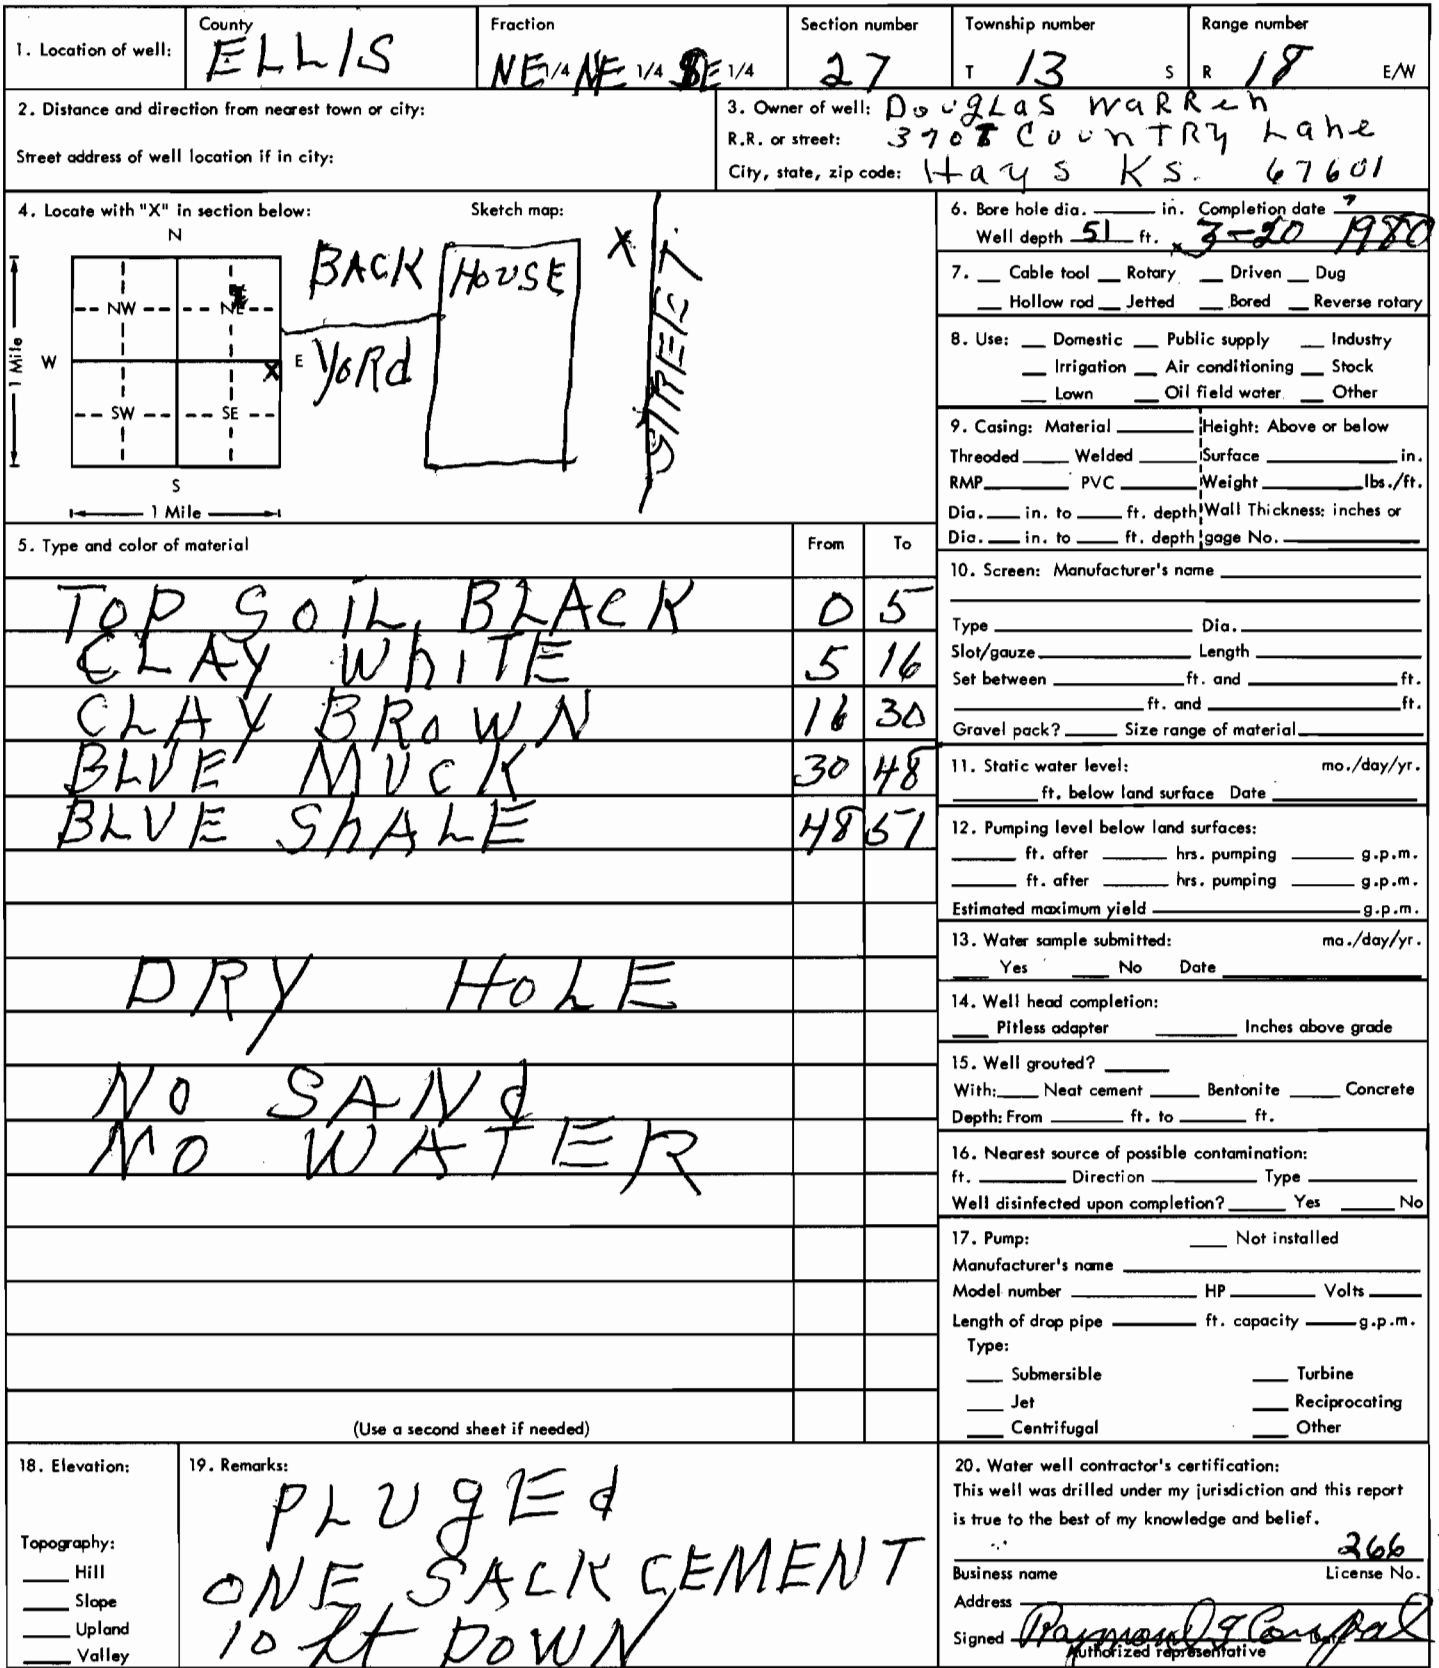 1. Location of well:
County
ELLIS
Fraction
NE 1/4 NE 1/4 SE 1/4
Section number
27
Township number
T 13 S
Range number
R 18 E/W
2. Distance and direction from nearest town or city:
Street address of well location if in city:
3. Owner of well: Douglas Warren
R.R. or street: 3708 Country Lane
City, state, zip code: Hays Ks. 67601
4. Locate with "X" in section below:
Sketch map:
N
NW NE
W E
SW SE
S
1 Mile
1 Mile
X
BACK
YORd
HOUSE
X
STREET
5. Type and color of material From To
TOP SOIL, BLACK 0 5
CLAY WhITE 5 16
CLAY BROWN 16 30
BLUE MUCK 30 48
BLUE ShALE 48 51
DRY HoLE
No SANd
No WATER
(Use a second sheet if needed)
6. Bore hole dia. in. Completion date
Well depth 51 ft. 3-20 1980
7. Cable tool Rotary Driven Dug
Hollow rod Jetted Bored Reverse rotary
8. Use: Domestic Public supply Industry
Irrigation Air conditioning Stock
Lown Oil field water Other
9. Casing: Material Height: Above or below
Threoded Welded Surface in.
RMP PVC Weight lbs./ft.
Dia. in. to ft. depth Wall Thickness: inches or
Dia. in. to ft. depth gage No.
10. Screen: Manufacturer's name
Type Dia.
Slot/gauze Length
Set between ft. and ft.
ft. and ft.
Gravel pack? Size range of material
11. Static water level: mo./day/yr.
ft. below land surface Date
12. Pumping level below land surfaces:
ft. after hrs. pumping g.p.m.
ft. after hrs. pumping g.p.m.
Estimated maximum yield g.p.m.
13. Water sample submitted: mo./day/yr.
Yes No Date
14. Well head completion:
Pitless adapter Inches above grade
15. Well grouted?
With: Neat cement Bentonite Concrete
Depth: From ft. to ft.
16. Nearest source of possible contamination:
ft. Direction Type
Well disinfected upon completion? Yes No
17. Pump: Not installed
Manufacturer's name
Model number HP Volts
Length of drop pipe ft. capacity g.p.m.
Type:
Submersible Turbine
Jet Reciprocating
Centrifugal Other
18. Elevation:
Topography:
Hill
Slope
Upland
Valley
19. Remarks:
PLUgEd
ONE SACK CEMENT
10 ft DOWN
20. Water well contractor's certification:
This well was drilled under my jurisdiction and this report
is true to the best of my knowledge and belief.
266
Business name License No.
Address
Signed Raymond Date
Authorized representative